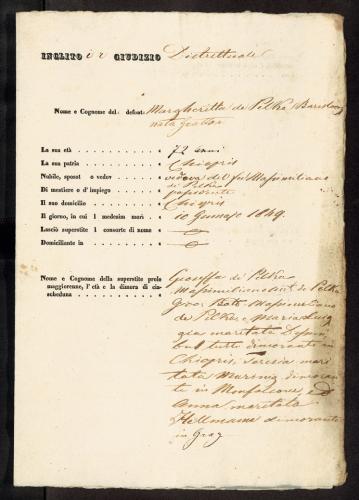 INCLITO i r GIUDIZIO Distrettuale
Nome e Cognome del defont Margheritta de Pelka
nata
La sua età 72 anni
La sua patria Chiopris
Nubile, sposat o vedov vedova del fu Massimiliano
de Pelka
Di mestiere o d' impiego possidente
Il suo domicilio Chiopris
Il giorno, in cui l medesim morì 10 Gennajo 1849.
Lasciò superstite l consorte di nome
Domiciliante in
Nome e Cognome della superstite prole
maggiorenne, l'età e la dimora di cia-
scheduna
Gioseffa de Pelka
Massimiliano de Pelka
Giov Batt Massimiliano
de Pelka e Maria Luig
gia maritata
tutti dimoranti in
Chiopris, Teresia mari
tata dimoran
te in Monfalcone, ed
Anna maritata
Hellmann dimorante
in Graz